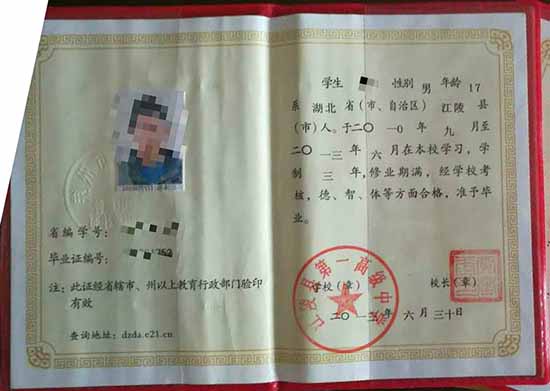 学生 性别 男 年龄 17
系 湖北 省(市、自治区) 江陵 县
(市)人。于二〇一〇年 九 月至
二〇一三年 六 月在本校学习,学
制 三 年,修业期满,经学校考
核,德、智、体等方面合格,准予毕
业。
学校(章) 校长(章)
江陵县第一高级中学
二〇一三年 六 月 三十 日
省编学号:
毕业证编号:
注: 此证经省辖市、州以上教育行政部门验印
有效
查询地址: dzda.e21.cn